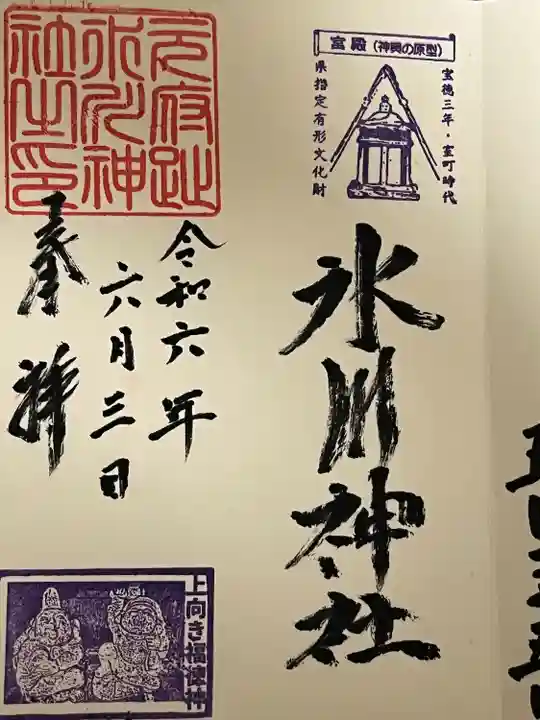 宮殿（神輿の原型）
宝徳三年・室町時代
県指定有形文化財
氷川神社
令和六年
六月三日
奉拝
元府趾
氷川神
社之印
上向き福俵神